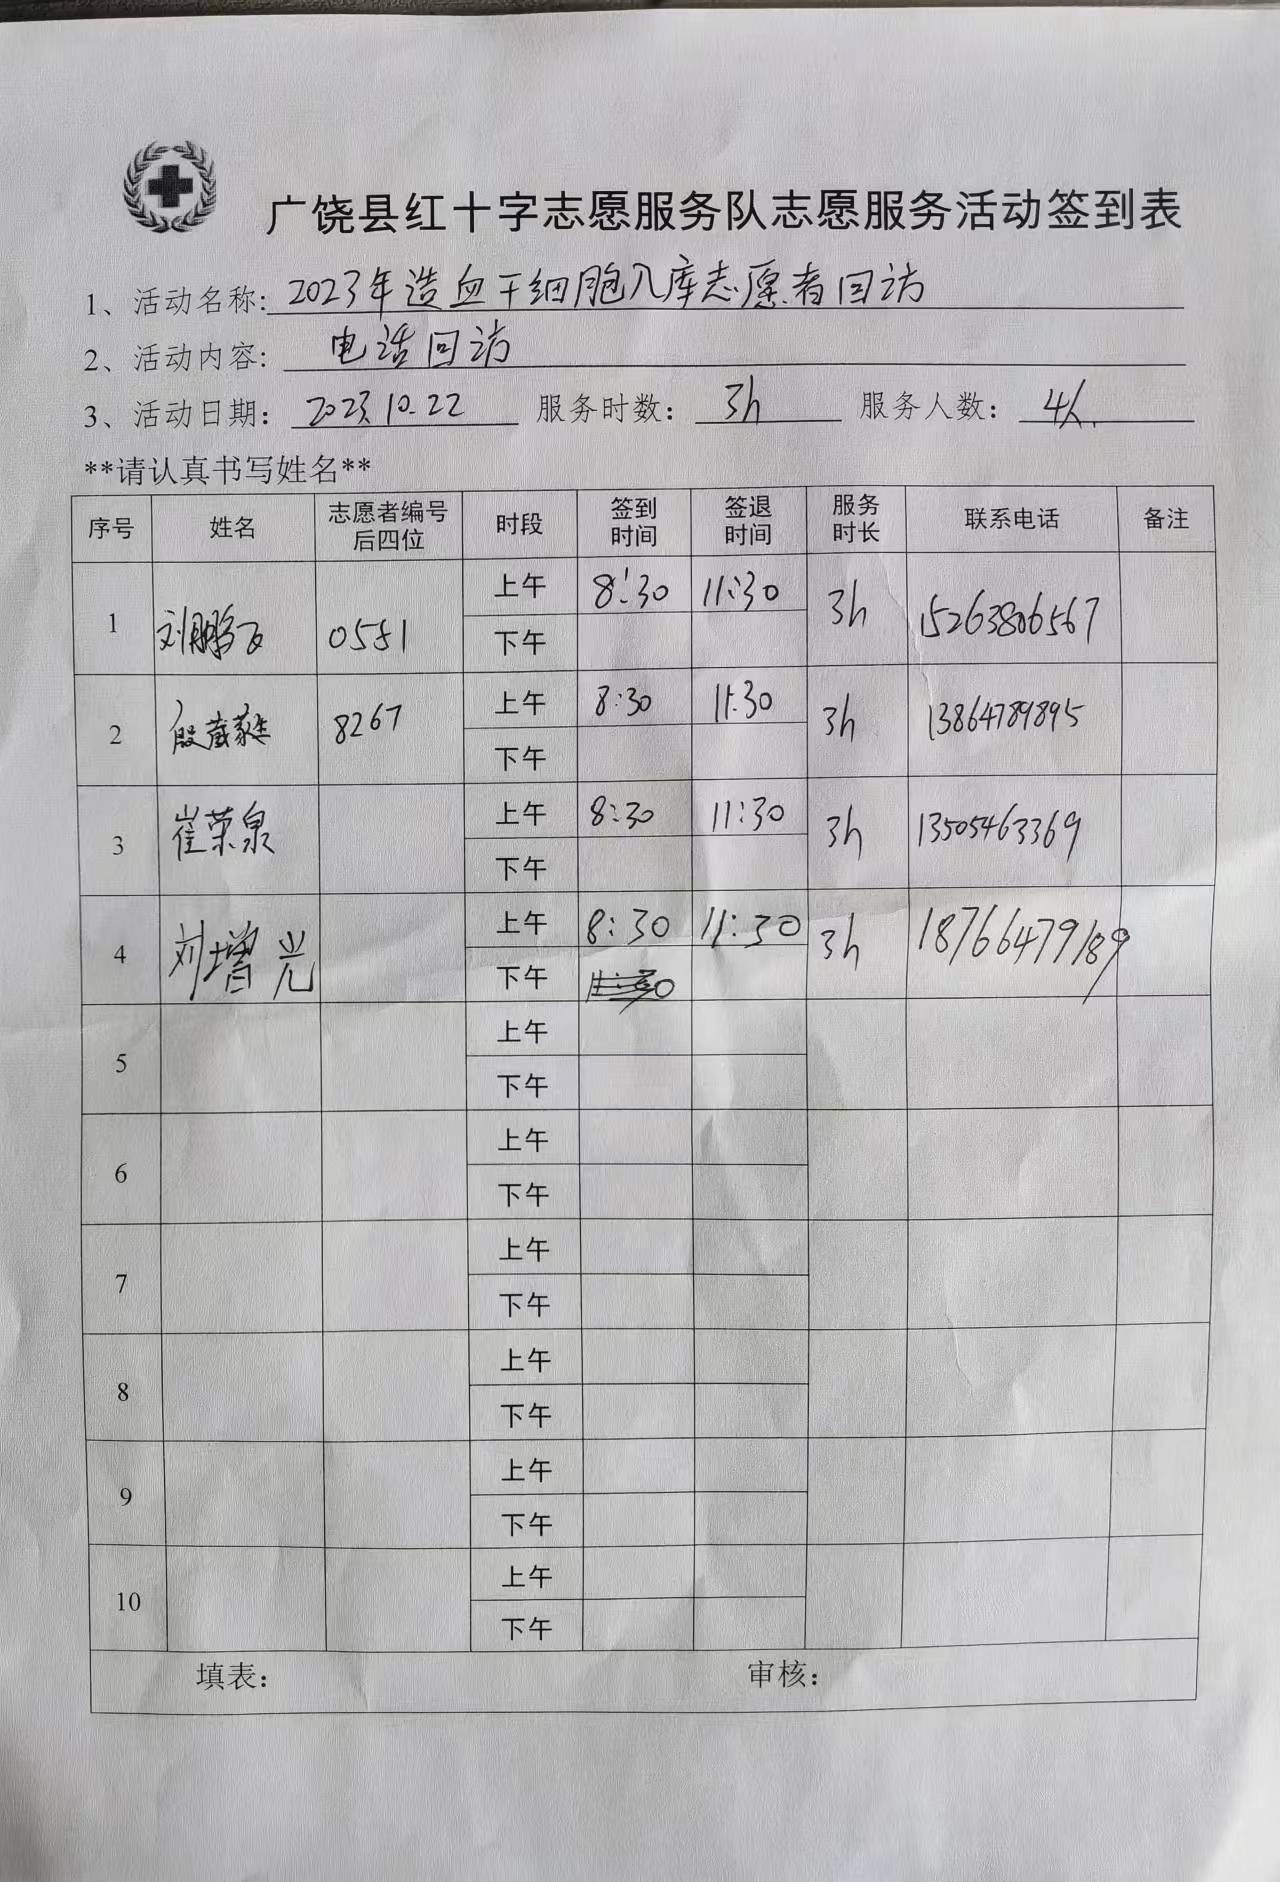 广饶县红十字志愿服务队志愿服务活动签到表
1、活动名称: 2023年造血干细胞入库志愿者回访
2、活动内容: 电话回访
3、活动日期: 2023.10.22 服务时数: 3h 服务人数: 4人.
**请认真书写姓名**
序号 姓名 志愿者编号后四位 时段 签到时间 签退时间 服务时长 联系电话 备注
1 刘鹏飞 0551 上午 8:30 11:30 3h 15263806567
下午
2 殷 8267 上午 8:30 11:30 3h 13864789895
下午
3 崔荣泉 上午 8:30 11:30 3h 13505463369
下午
4 刘增光 上午 8:30 11:30 3h 18766479189
下午
5 上午
下午
6 上午
下午
7 上午
下午
8 上午
下午
9 上午
下午
10 上午
下午
填表: 审核: